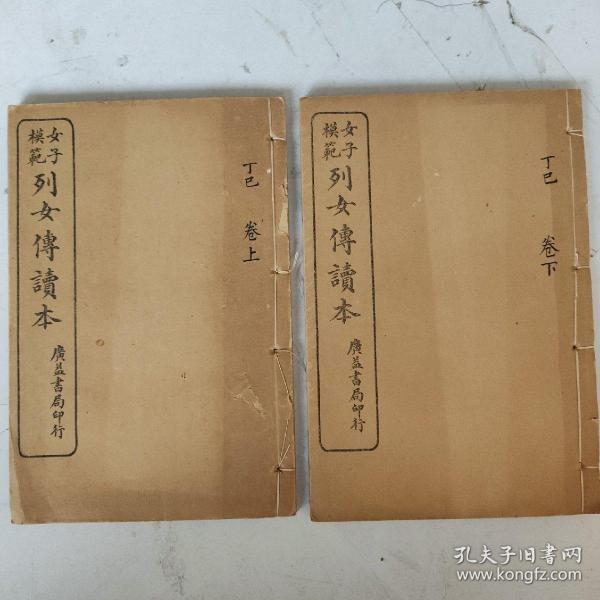 女子
模範
列女傳讀本
廣益書局印行
丁巳 卷上
女子
模範
列女傳讀本
廣益書局印行
丁巳 卷下
孔夫子旧书网
www.kongfz.com